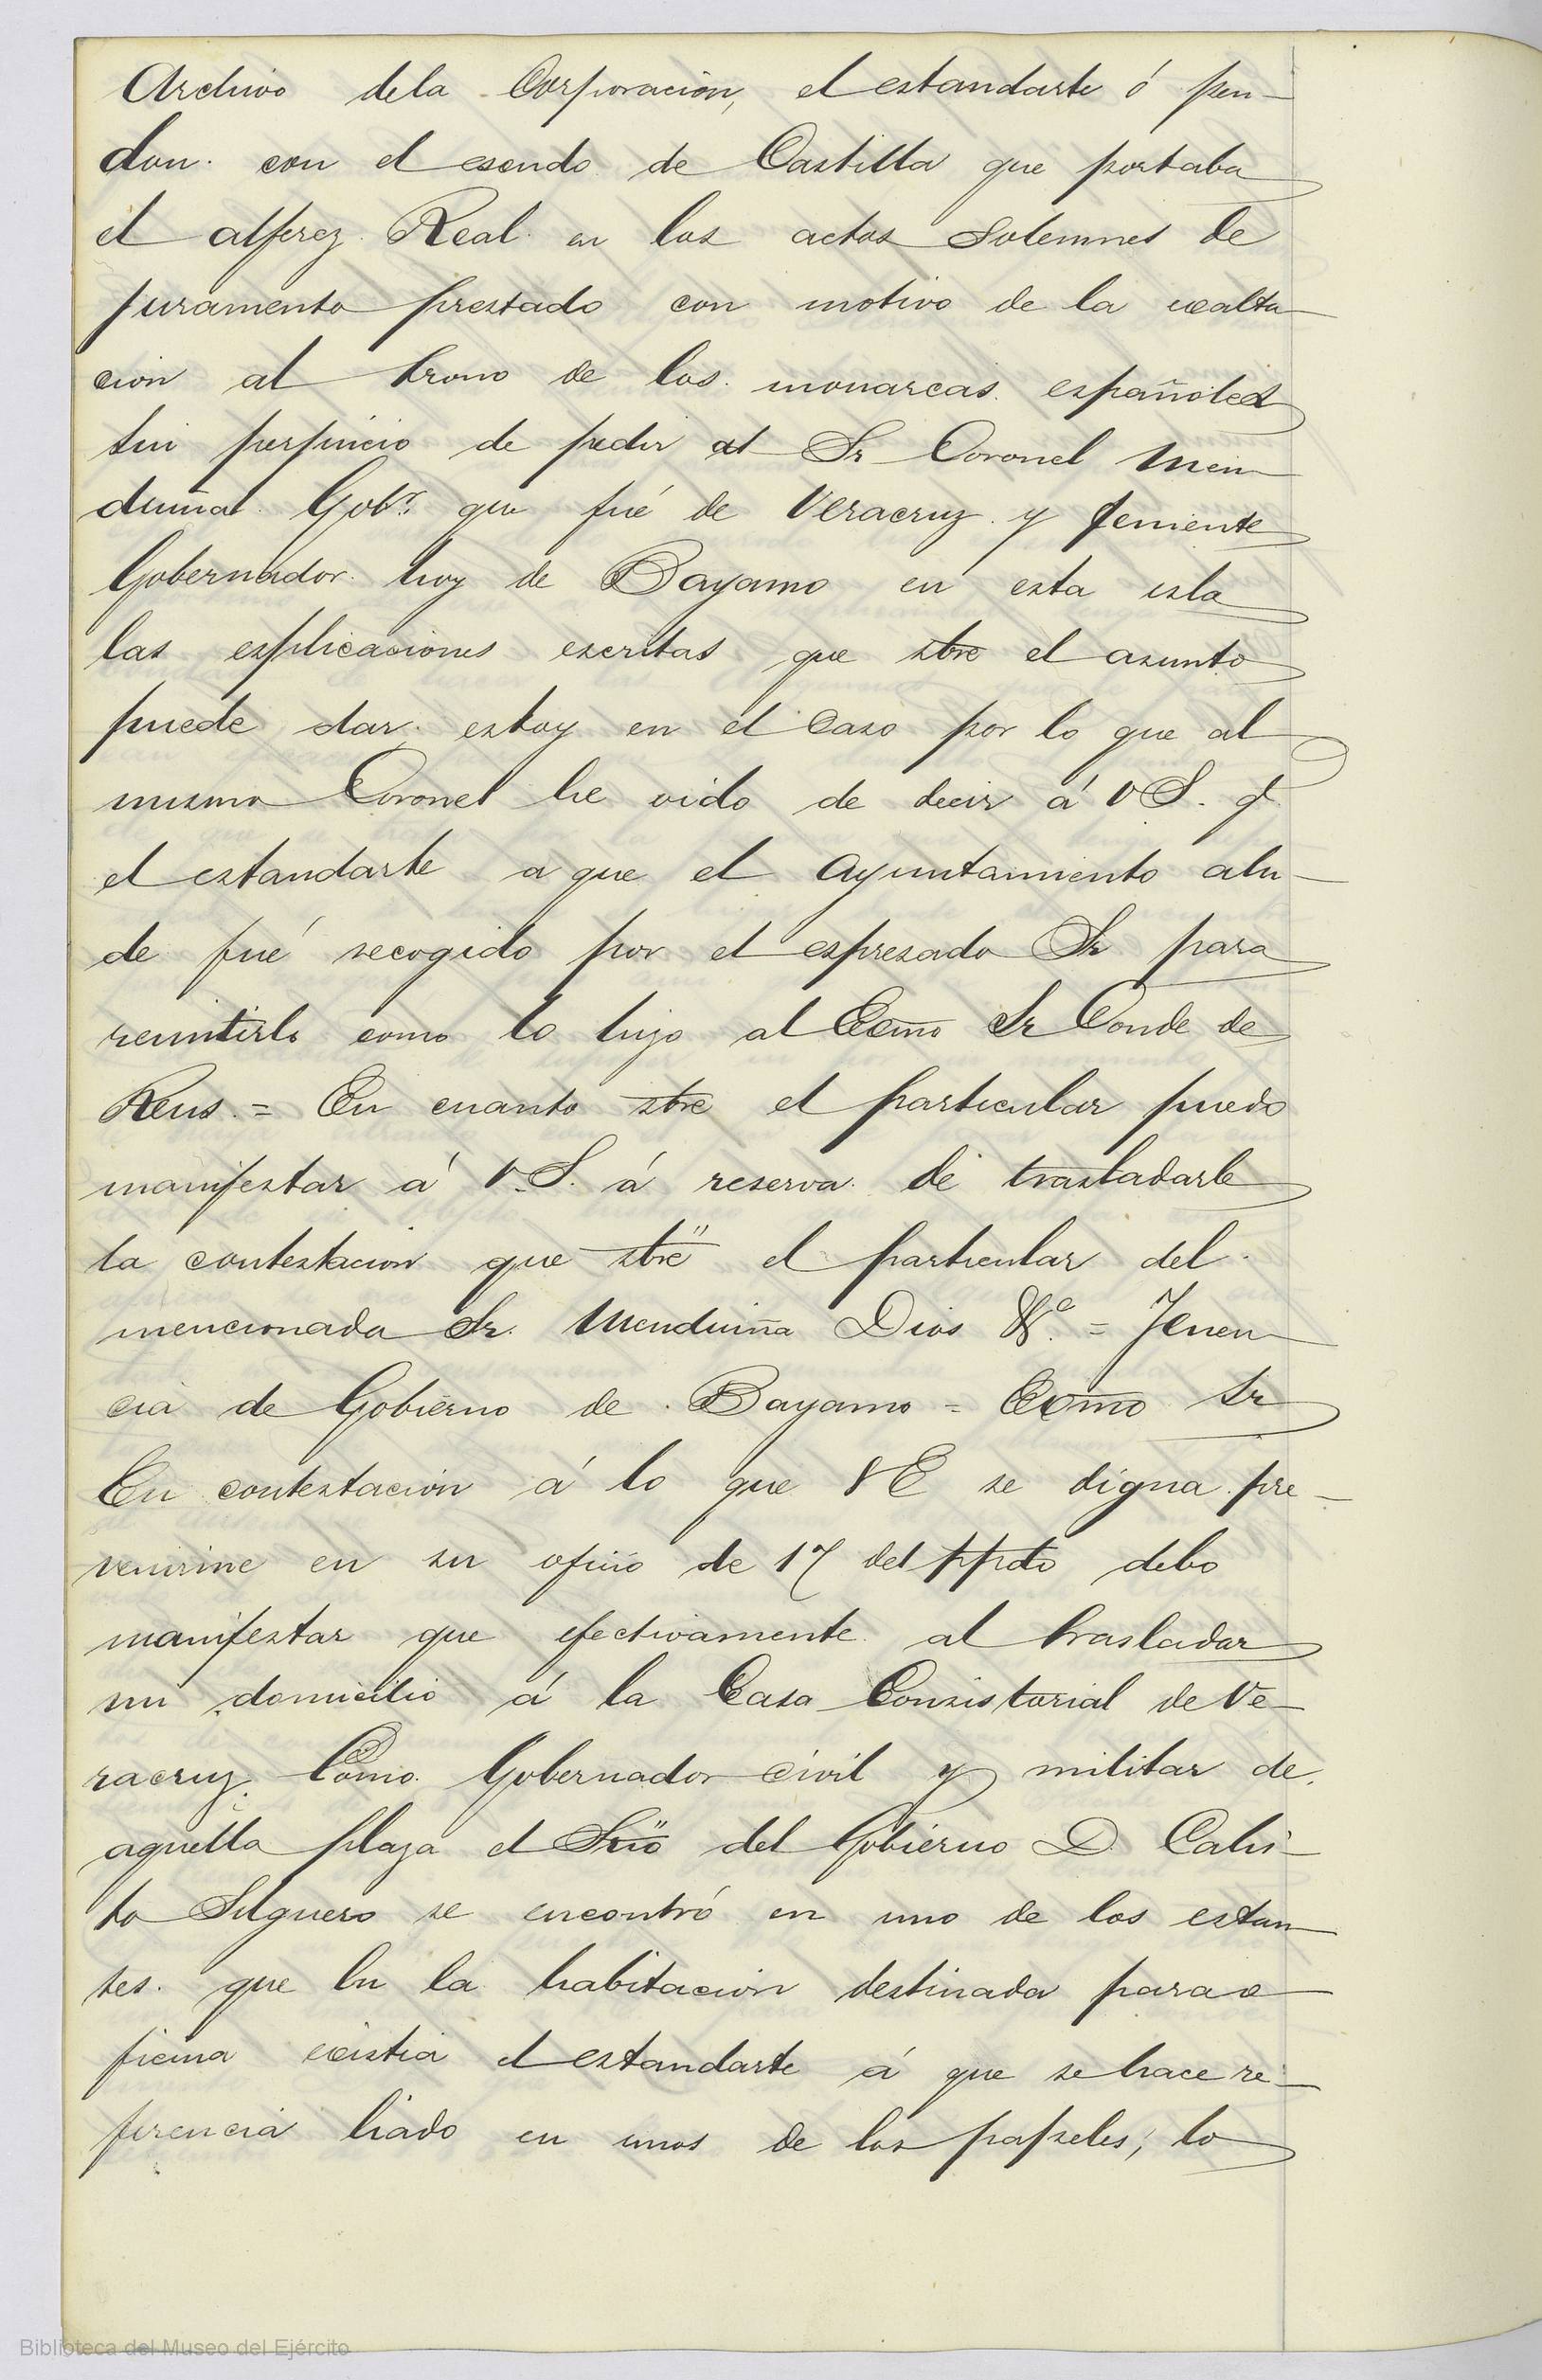 Archivo dela Corporacion, el estandarte ó pen-
don con el escudo de Castilla que portaba
el alferez Real en los actos solemnes de
juramento prestado con motivo de la exalta
cion al trono de los monarcas españoles
sin perjuicio de pedir al Sr Coronel Men
duiña Gobr. que fué de Veracruz y teniente
Gobernador hoy de Bayamo en esta isla
las esplicaciones escritas que sbre el asunto
puede dar estoy en el caso por lo que al
mismo Coronel he oido de decir á VS. q.
el estandarte a que el Ayuntamiento alu-
de fué recogido por el espresado Sr para
remitirlo como lo hizo al Ecmo Sr Conde de
Reus. = En cuanto sbre el particular puedo
manifestar á V.S. á reserva de trasladarle
la contestacion que sbre el particular del
mencionado Sr. Menduiña Dios &a. = Tenen
cia de Gobierno de Bayamo = Ecmo Sr
En contestacion á lo que VE se digna pre-
venirme en su oficio de 17 del ppdo debo
manifestar que efectivamente al trasladar
mi domicilio á la Casa Consistorial de Ve-
racruz. Como Gobernador civil y militar de
aquella plaza el Srio del Gobierno D. Calis-
to Silguero se encontró en uno de los estan
tes que en la habitacion destinada para o
ficina existia el estandarte á que se hace re-
ferencia liado en unos de los papeles, lo
Biblioteca del Museo del Ejército